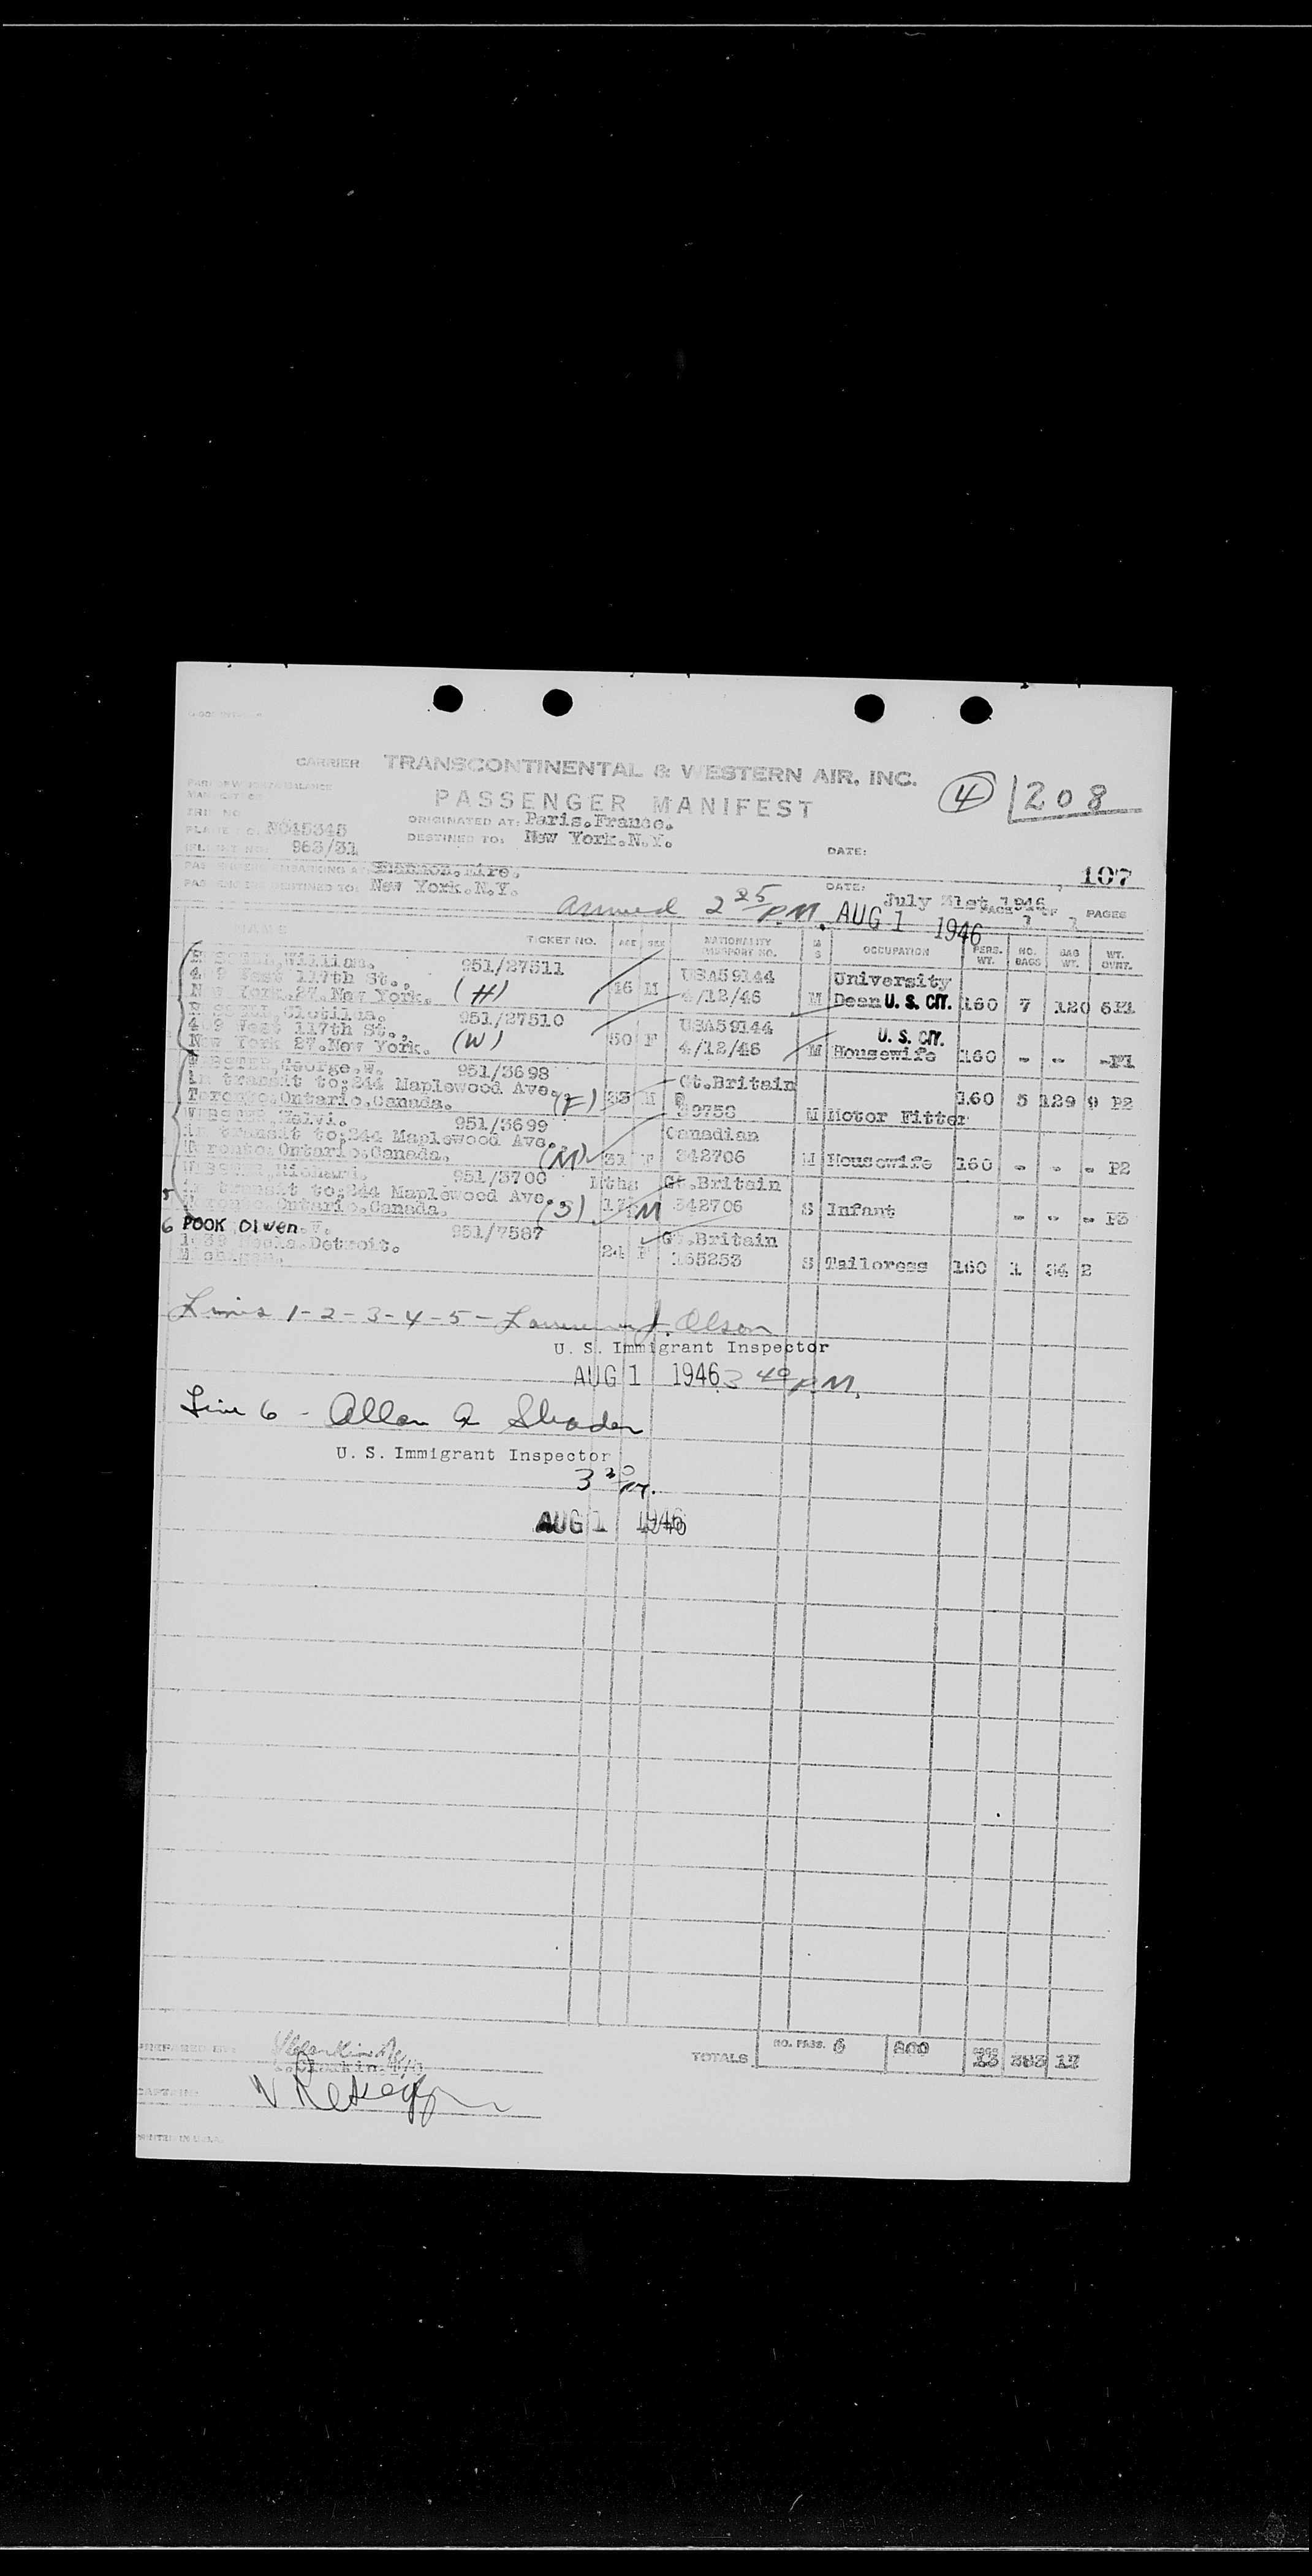 CARRIER TRANSCONTINENTAL & WESTERN AIR, INC.
PASSENGER MANIFEST
4 208
TRIP NO
ORIGINATED AT: Paris.France.
PLANE NO. NC45345
DESTINED TO: New York.N.Y.
FLIGHT NO. 963/31
DATE:
107
Shannon.Eire.
PASSENGERS DESTINED TO: New York.N.Y.
DATE: July 31st 1946
PAGE 1 OF 1 PAGES
arrived 2 25 P.M. AUG 1 1946
NAME TICKET NO. AGE SEX NATIONALITY PASSPORT NO. M S OCCUPATION PERS. WT. NO. BAGS BAG WT. WT. OVRT.
William. 951/27511 USA59144 University
409 West 117th St., 46 M 4/12/46 M Dean U. S. CIT. 160 7 120 5 F1
New York.27.New York. (H)
Clotilda. 951/27510 USA59144 U. S. CIT.
409 West 117th St., 50 F 4/12/46 M Housewife 160 - -- -F1
New York 27.New York. (W)
George.W. 951/3698 Gt.Britain
in transit to;244 Maplewood Ave. 33 M 160 5 129 9 P2
Toronto.Ontario.Canada. (F) 39758 M Motor Fitter
951/3699 Canadian
in transit to;244 Maplewood Ave.
Toronto.Ontario.Canada. (M) 31 F 342706 M Housewife 160 - - - P2
Michael. 951/3700 Mths Gt.Britain
5 in transit to;244 Maplewood Ave. 17 M 342706 S Infant - -- - P3
Toronto.Ontario.Canada. (S)
6 POOK Olwen.V. 951/7587 Gt.Britain
Detroit. 24 F 165253 S Tailoress 160 1 34 2
Michigan.
Lines 1-2-3-4-5- Lawrence J. Olson
U. S. Immigrant Inspector
AUG 1 1946 3 40 P.M.
Line 6 - Allan A Shader
U. S. Immigrant Inspector
3 30 PM.
AUG 1 1946
PREPARED BY:
TOTALS NO. PASS. 6 800 13 283 17
CAPTAIN:
PRINTED IN U.S.A.